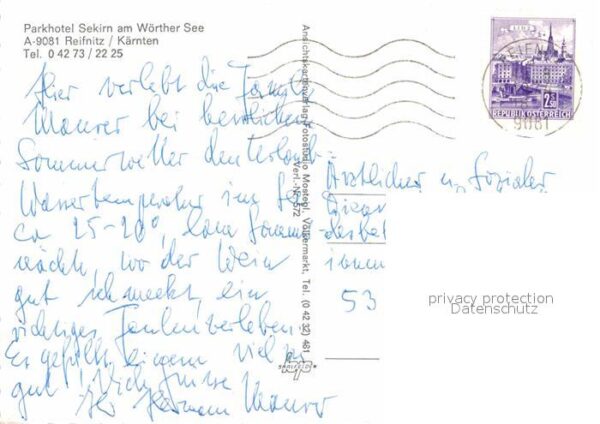 Parkhotel Sekirn am Wörther See
A-9081 Reifnitz / Kärnten
Tel. 0 42 73 / 22 25
Hier verlebt die Familie
Maurer bei herrlichem
Sommerwetter den Urlaub.
Wassertemperatur im See
ca 25-20°, laue Sommer
nächte, wo der Wein
gut schmeckt, ein
richtiges Faulenzerleben.
Es gefällt einem viel zu
gut! Viele Grüsse
Ihr Hermann Maurer
Ansichtskartenverlag Fotostudio Mostegl, Völkermarkt, Tel. (0 42 32) 481
Verl.-Nr. 572
SAALFELDEN
LINZ
2.50
REPUBLIK ÖSTERREICH
9081
Ärztlicher u. Sozialer
Dienst
53
privacy protection
Datenschutz